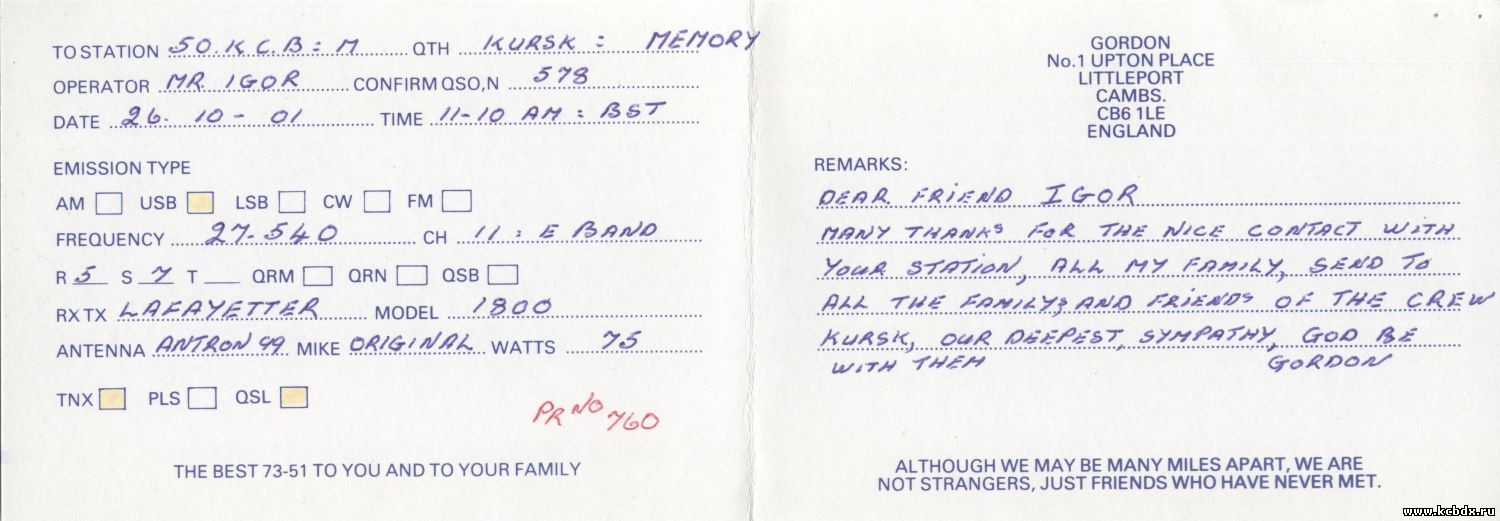 TO STATION 50. K C. B = M QTH KURSK : MEMORY
OPERATOR MR. IGOR CONFIRM QSO,N 578
DATE 26. 10 - 01 TIME 11-10 AM : BST
EMISSION TYPE
AM USB LSB CW FM
FREQUENCY 27-540 CH 11 : E BAND
R 5 S 7 T QRM QRN QSB
RX TX LAFAYETTER MODEL 1800
ANTENNA ANTRON 99 MIKE ORIGINAL WATTS 75
TNX PLS QSL
PR NO 760
THE BEST 73-51 TO YOU AND TO YOUR FAMILY
GORDON
No.1 UPTON PLACE
LITTLEPORT
CAMBS.
CB6 1LE
ENGLAND
REMARKS:
DEAR FRIEND IGOR
MANY THANKS FOR THE NICE CONTACT WITH
YOUR STATION, ALL MY FAMILY, SEND TO
ALL THE FAMILYS AND FRIENDS OF THE CREW
KURSK, OUR DEEPEST, SYMPATHY, GOD BE
WITH THEM GORDON
ALTHOUGH WE MAY BE MANY MILES APART, WE ARE
NOT STRANGERS, JUST FRIENDS WHO HAVE NEVER MET.
www.kcbdx.ru